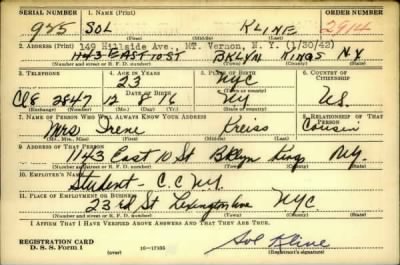 SERIAL NUMBER 1. NAME (Print) ORDER NUMBER
925 SOL KLINE 2914
(First) (Middle) (Last)
2. ADDRESS (Print) 149 Hillside Ave., MT. Vernon, N. Y. (1/30/42)
1143 EAST 10 ST BKLYN KINGS N.Y.
(Number and street or R. F. D. number) (Town) (County) (State)
3. TELEPHONE 4. AGE IN YEARS 5. PLACE OF BIRTH 6. COUNTRY OF CITIZENSHIP
23 NYC
DATE OF BIRTH
2847 12 16 NY U.S.
(Exchange) (Number) (Mo.) (Day) (Yr.) (State or country)
7. NAME OF PERSON WHO WILL ALWAYS KNOW YOUR ADDRESS 8. RELATIONSHIP OF THAT PERSON
Mrs. Irene Kreiss Cousin
(Mr., Mrs., Miss) (First) (Middle) (Last)
9. ADDRESS OF THAT PERSON
1143 East 10 St Bklyn Kings N.Y.
(Number and street or R. F. D. number) (Town) (County) (State)
10. EMPLOYER'S NAME
Student - C.C.N.Y.
11. PLACE OF EMPLOYMENT OR BUSINESS
23rd St Lexington Ave NYC
(Number and street or R. F. D. number) (Town) (County) (State)
I AFFIRM THAT I HAVE VERIFIED ABOVE ANSWERS AND THAT THEY ARE TRUE.
REGISTRATION CARD
D. S. S. Form 1 (over) 16-17105 Sol Kline
(Registrant's signature)